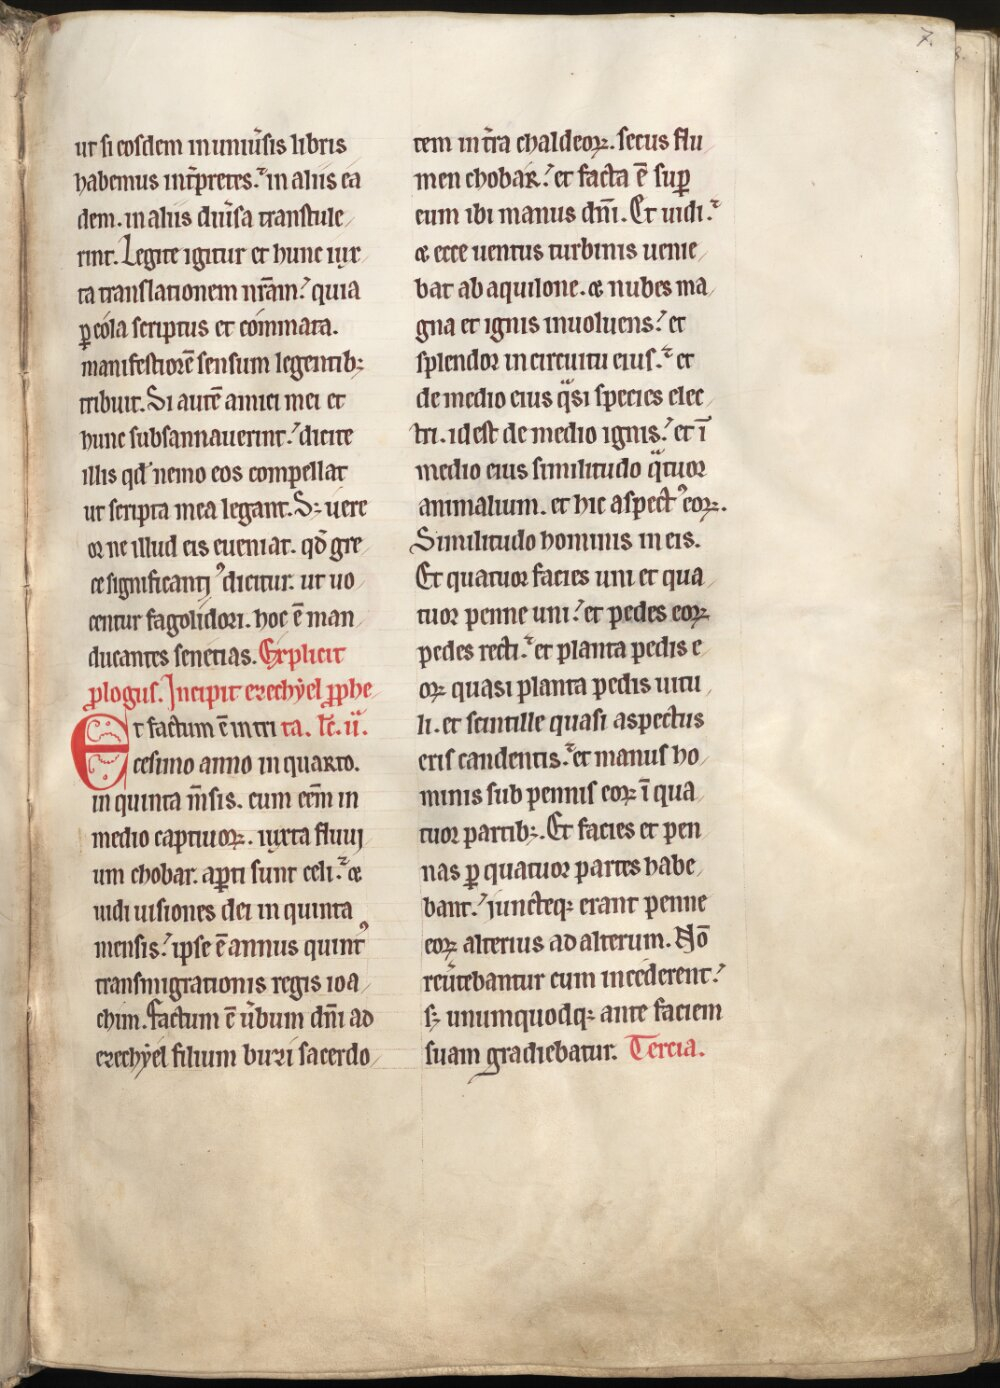 7.
ut si eosdem in uniũsis libris
habemus int̃pretes. in aliis ea
dem. in aliis diũsa transtule
rint. Legite igitur et hunc iux
ta translationem nr̃am. quia
ꝑ cola scriptus et commata.
manifestiorẽ sensum legentib;
tribuit. Si autẽ amici mei et
hunc subsannauerint. dicite
illis qd nemo eos compellat
ut scripta mea legant. S; uere
or ne illud eis eueniat. qđ gre
ce significantiꝰ dicitur. ut uo
centur fagolidori. hoc ẽ man
ducantes senecias. Explicit
ꝓlogus. Incipit ezechyel ꝓphe
Et factum ẽ in tri ta. lc̃. ii.
cesimo anno in quarto.
in quinta m̃sis. cum eẽm in
medio captiuoꝝ. iuxta fluuij
um chobar. aꝑti sunt celi. et
uidi uisiones dei in quinta
mensis. ipse ẽ annus quintꝰ
transmigrationis regis ioa
chim. Factum ẽ ũbum dñi ad
ezechyel filium buzi sacerdo
tem in t̃ra chaldeoꝝ. secus flu
men chobar. et facta ẽ suꝑ
eum ibi manus dñi. Et uidi.
et ecce uentus turbinis uenie
bat ab aquilone. et nubes ma
gna et ignis inuoluens. et
splendor in circuitu eius. et
de medio eius qͣsi species elec
tri. id est de medio ignis. et ĩ
medio eius similitudo qͣtuor
animalium. et hic aspectꝰ eoꝝ.
Similitudo hominis in eis.
Et quatuor facies uni et qua
tuor penne uni. et pedes eoꝝ
pedes recti. et planta pedis e
oꝝ quasi planta pedis uitu
li. et scintille quasi aspectus
eris candentis. et manus ho
minis sub pennis eoꝝ ĩ qua
tuor partib;. Et facies et pen
nas ꝑ quatuor partes habe
bant. iuncteq; erant penne
eoꝝ alterius ad alterum. Nõ
reũtebantur cum incederent.
s; unumquodq; ante faciem
suam gradiebatur. Tercia.